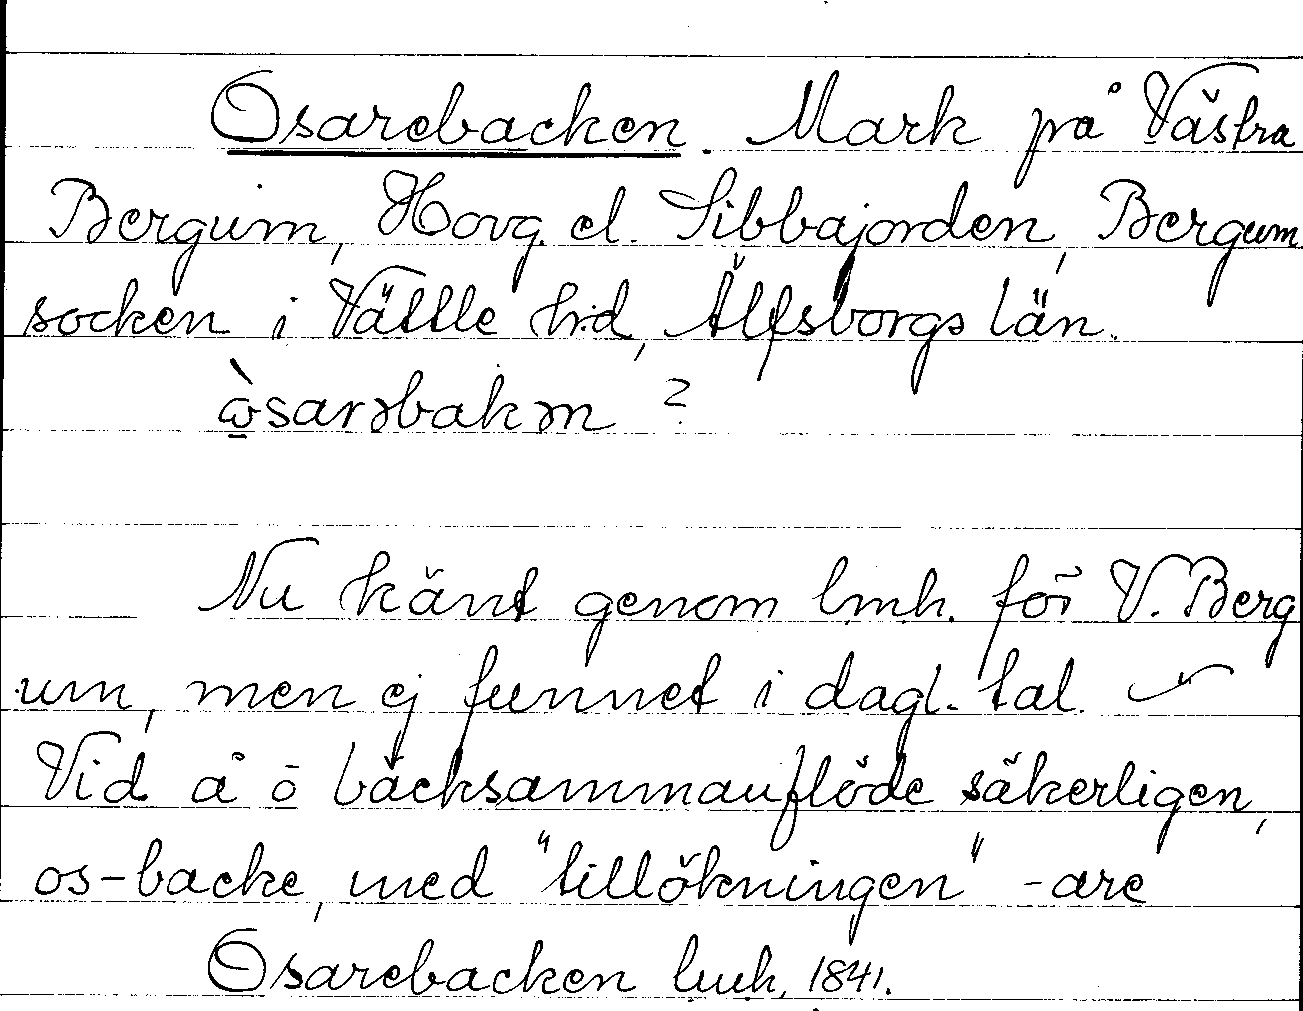 Osarebacken. Mark på Västra
Bergum, Hovg. el. Sibbajorden, Bergum
socken i Vättle hd, Älfsborgs län.
ὼsarəbakən ?
Nu känt genom lmh. för V. Berg
um, men ej funnet i dagl. tal.
Vid å ō bäcksammanflöde säkerligen,
os-backe, med "tillökningen" -are
Osarebacken lmh, 1841.